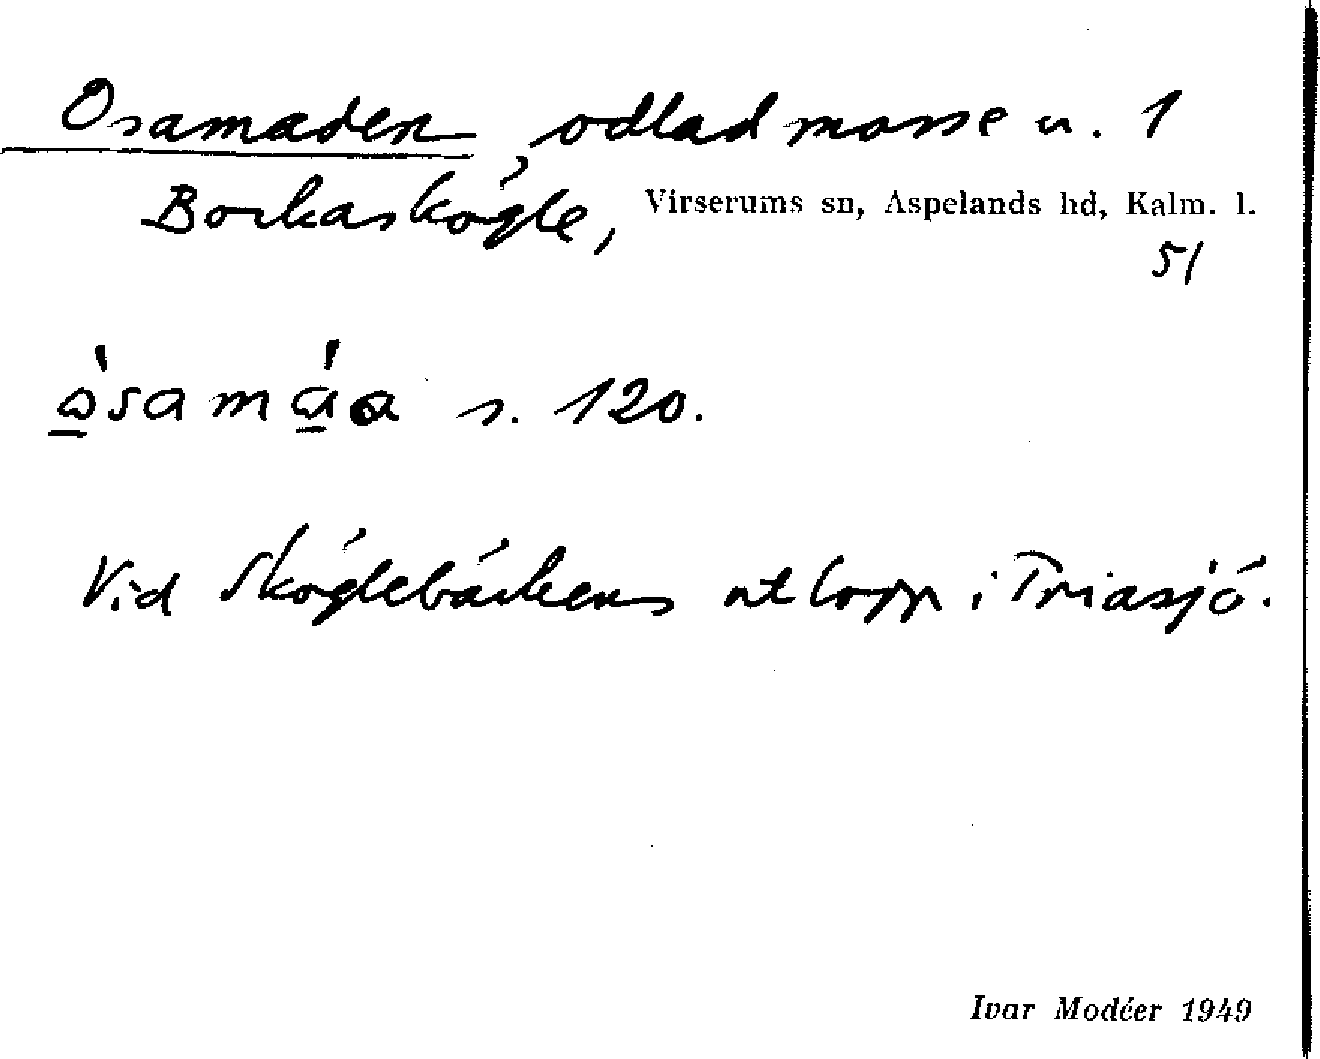 Osamaden, odlad mosse u. 1
Borkaskögle, Virserums sn, Aspelands hd, Kalm. l.
51
òsamáa s. 120.
Vid Sköglebäckens utlopp i Triasjö.
Ivar Modéer 1949